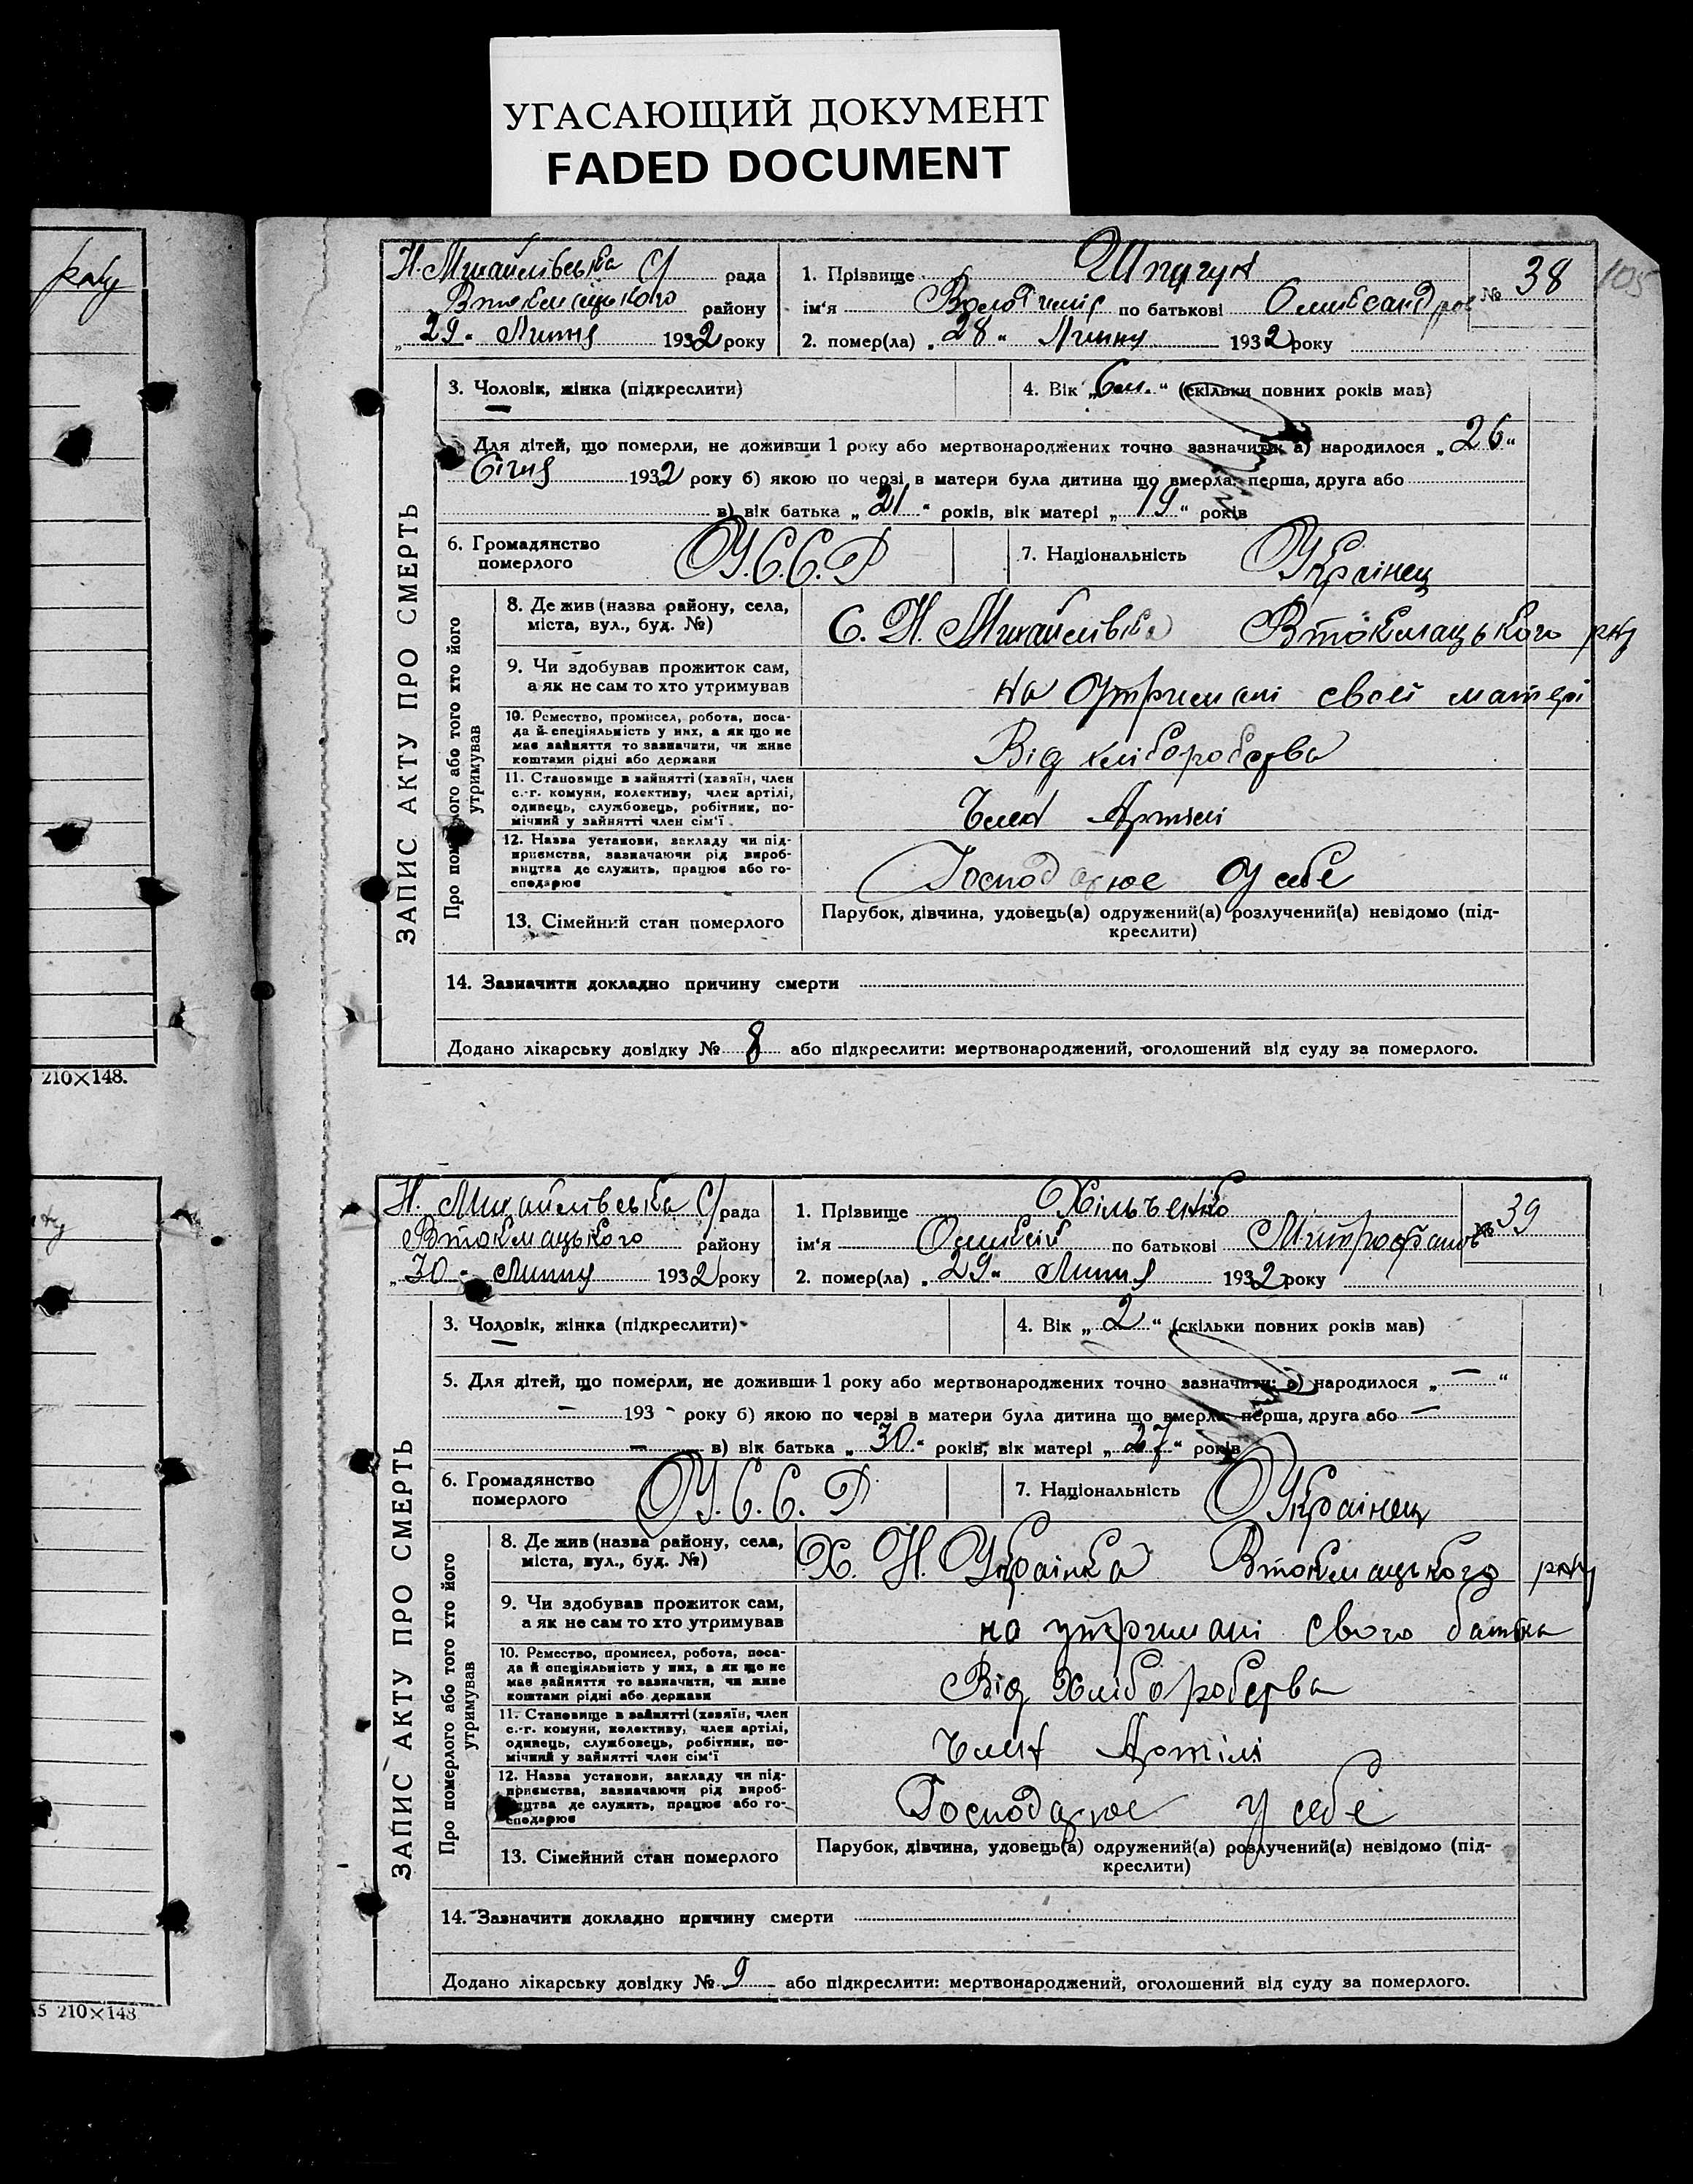 УГАСАЮЩИЙ ДОКУМЕНТ
FADED DOCUMENT
105
Н. Михайлівська С/ рада
Втокмацького району
„29“ Липня 1932 року
1. Прізвище Шпугун
ім‘я Володімір по батькові Оликсандров
№ 38
2. помер(ла) „28“ Липня 1932 року
3. Чоловік, жінка (підкреслити)
4. Вік „6 м.“ (скільки повних років мав)
Для дітей, що померли, не доживши 1 року або мертвонароджених точно зазначити: а) народилося „26“
Січня 1932 року б) якою по черзі в матери була дитина що вмерла: перша, друга або
в) вік батька „21“ років, вік матері „19“ років
6. Громадянство померлого У.С.С.Р
7. Національність Українец
ЗАПИС АКТУ ПРО СМЕРТЬ
Про померлого або того хто його утримував
8. Де жив (назва району, села,
міста, вул., буд. №)
С. Н. Михайлівка Втокмацького р-ну
9. Чи здобував прожиток сам,
а як не сам то хто утримував
на Утримані своєї матері
10. Ремество, промисел, робота, поса-
да й спеціяльність у них, а як що не
має зайняття то зазначити, чи живе
коштами рідні або держави
Від хліборобства
11. Становище в зайнятті (хазяїн, член
с.-г. комуни, колективу, член артілі,
одинець, службовець, робітник, по-
мічний у зайнятті член сім‘ї
Член Артілі
12. Назва установи, закладу чи під-
приємства, зазначаючи рід вироб-
ництва де служить, працює або го-
сподарює
Господарює У себе
13. Сімейний стан померлого
Парубок, дівчина, удовець(а) одружений(а) розлучений(а) невідомо (під-
креслити)
14. Зазначити докладно причину смерти
Додано лікарську довідку № 8 або підкреслити: мертвонароджений, оголошений від суду за померлого.
210×148.
Н. Михайлівська С/ рада
Втокмацького району
„30“ Липня 1932 року
1. Прізвище Хільченко
ім‘я Оликсій по батькові Митрофанов
№ 39
2. помер(ла) „29“ Липня 1932 року
3. Чоловік, жінка (підкреслити)
4. Вік „2“ (скільки повних років мав)
5. Для дітей, що померли, не доживши 1 року або мертвонароджених точно зазначити: а) народилося „—“
— 193 - року б) якою по черзі в матери була дитина що вмерла: перша, друга або —
— в) вік батька „30“ років, вік матері „27“ років
6. Громадянство померлого У.С.С.Р
7. Національність Українец
ЗАПИС АКТУ ПРО СМЕРТЬ
Про померлого або того хто його утримував
8. Де жив (назва району, села,
міста, вул., буд. №)
Х. Н. Українка Втокмацького р-ну
9. Чи здобував прожиток сам,
а як не сам то хто утримував
на утримані свого батька
10. Ремество, промисел, робота, поса-
да й спеціяльність у них, а як що не
має зайняття то зазначити, чи живе
коштами рідні або держави
Від Хліборобства
11. Становище в зайнятті (хазяїн, член
с.-г. комуни, колективу, член артілі,
одинець, службовець, робітник, по-
мічний у зайнятті член сім‘ї
Член Артілі
12. Назва установи, закладу чи під-
приємства, зазначаючи рід вироб-
ництва де служить, працює або го-
сподарює
Господарює У себе
13. Сімейний стан померлого
Парубок, дівчина, удовець(а) одружений(а) розлучений(а) невідомо (під-
креслити)
14. Зазначити докладно причину смерти
Додано лікарську довідку № 9 або підкреслити: мертвонароджений, оголошений від суду за померлого.
5 210×148